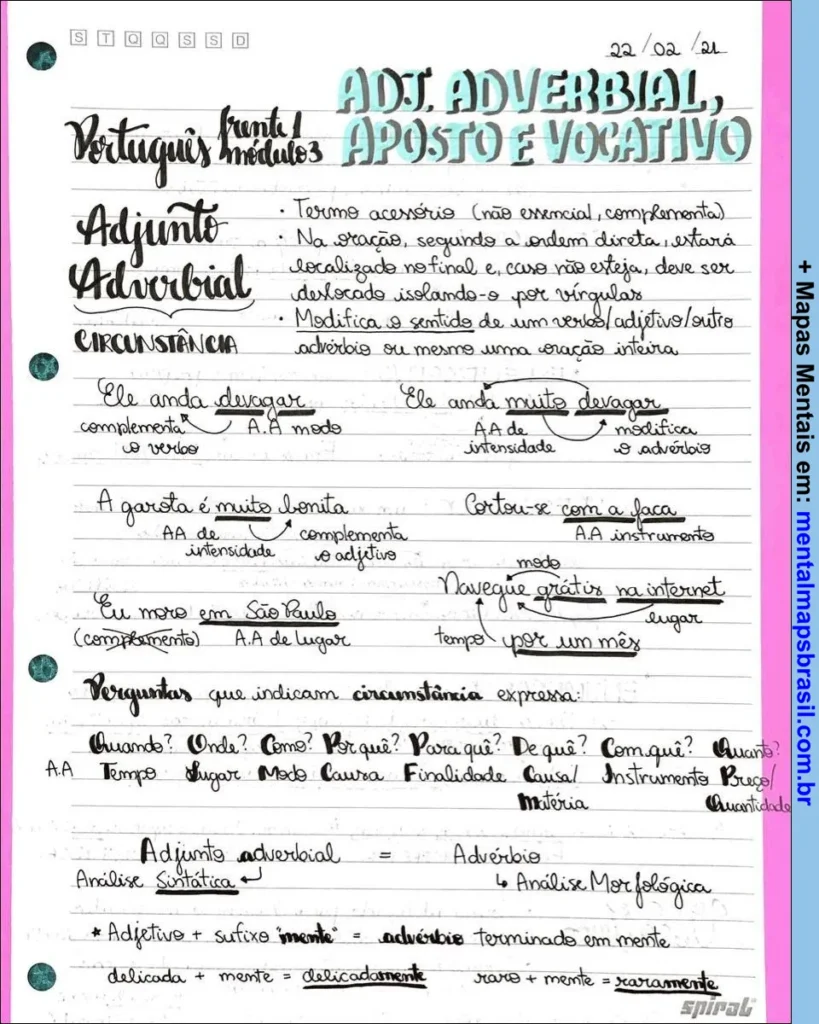 S T Q Q S S D
22/02/21
ADJ. ADVERBIAL,
APOSTO E VOCATIVO
Português frente 1
módulo 3
Adjunto
Adverbial
CIRCUNSTÂNCIA
· Termo acessório (não essencial, complementa)
· Na oração, segundo a ordem direta, estará
localizado no final e, caso não esteja, deve ser
deslocado isolando-o por vírgulas
· Modifica o sentido de um verbo/adjetivo/outro
advérbio ou mesmo uma oração inteira
Ele anda devagar
complementa A.A modo
o verbo
Ele anda muito devagar
AA de modifica
intensidade o advérbio
A garota é muito bonita
AA de complementa
intensidade o adjetivo
Cortou-se com a faca
A.A instrumento
Eu moro em São Paulo
(complemento) A.A de Lugar
modo
Navegue grátis na internet
lugar
tempo por um mês
Perguntas que indicam circunstância expressa:
Quando? Onde? Como? Por quê? Para quê? De quê? Com quê? Quanto?
A.A Tempo Lugar Modo Causa Finalidade Causa/ Instrumento Preço/
Matéria Quantidade
Adjunto adverbial = Advérbio
Análise Sintática ↳ Análise Morfológica
* Adjetivo + sufixo "mente" = advérbio terminado em mente
delicada + mente = delicadamente raro + mente = raramente
spiral
+ Mapas Mentais em: mentalmapsbrasil.com.br